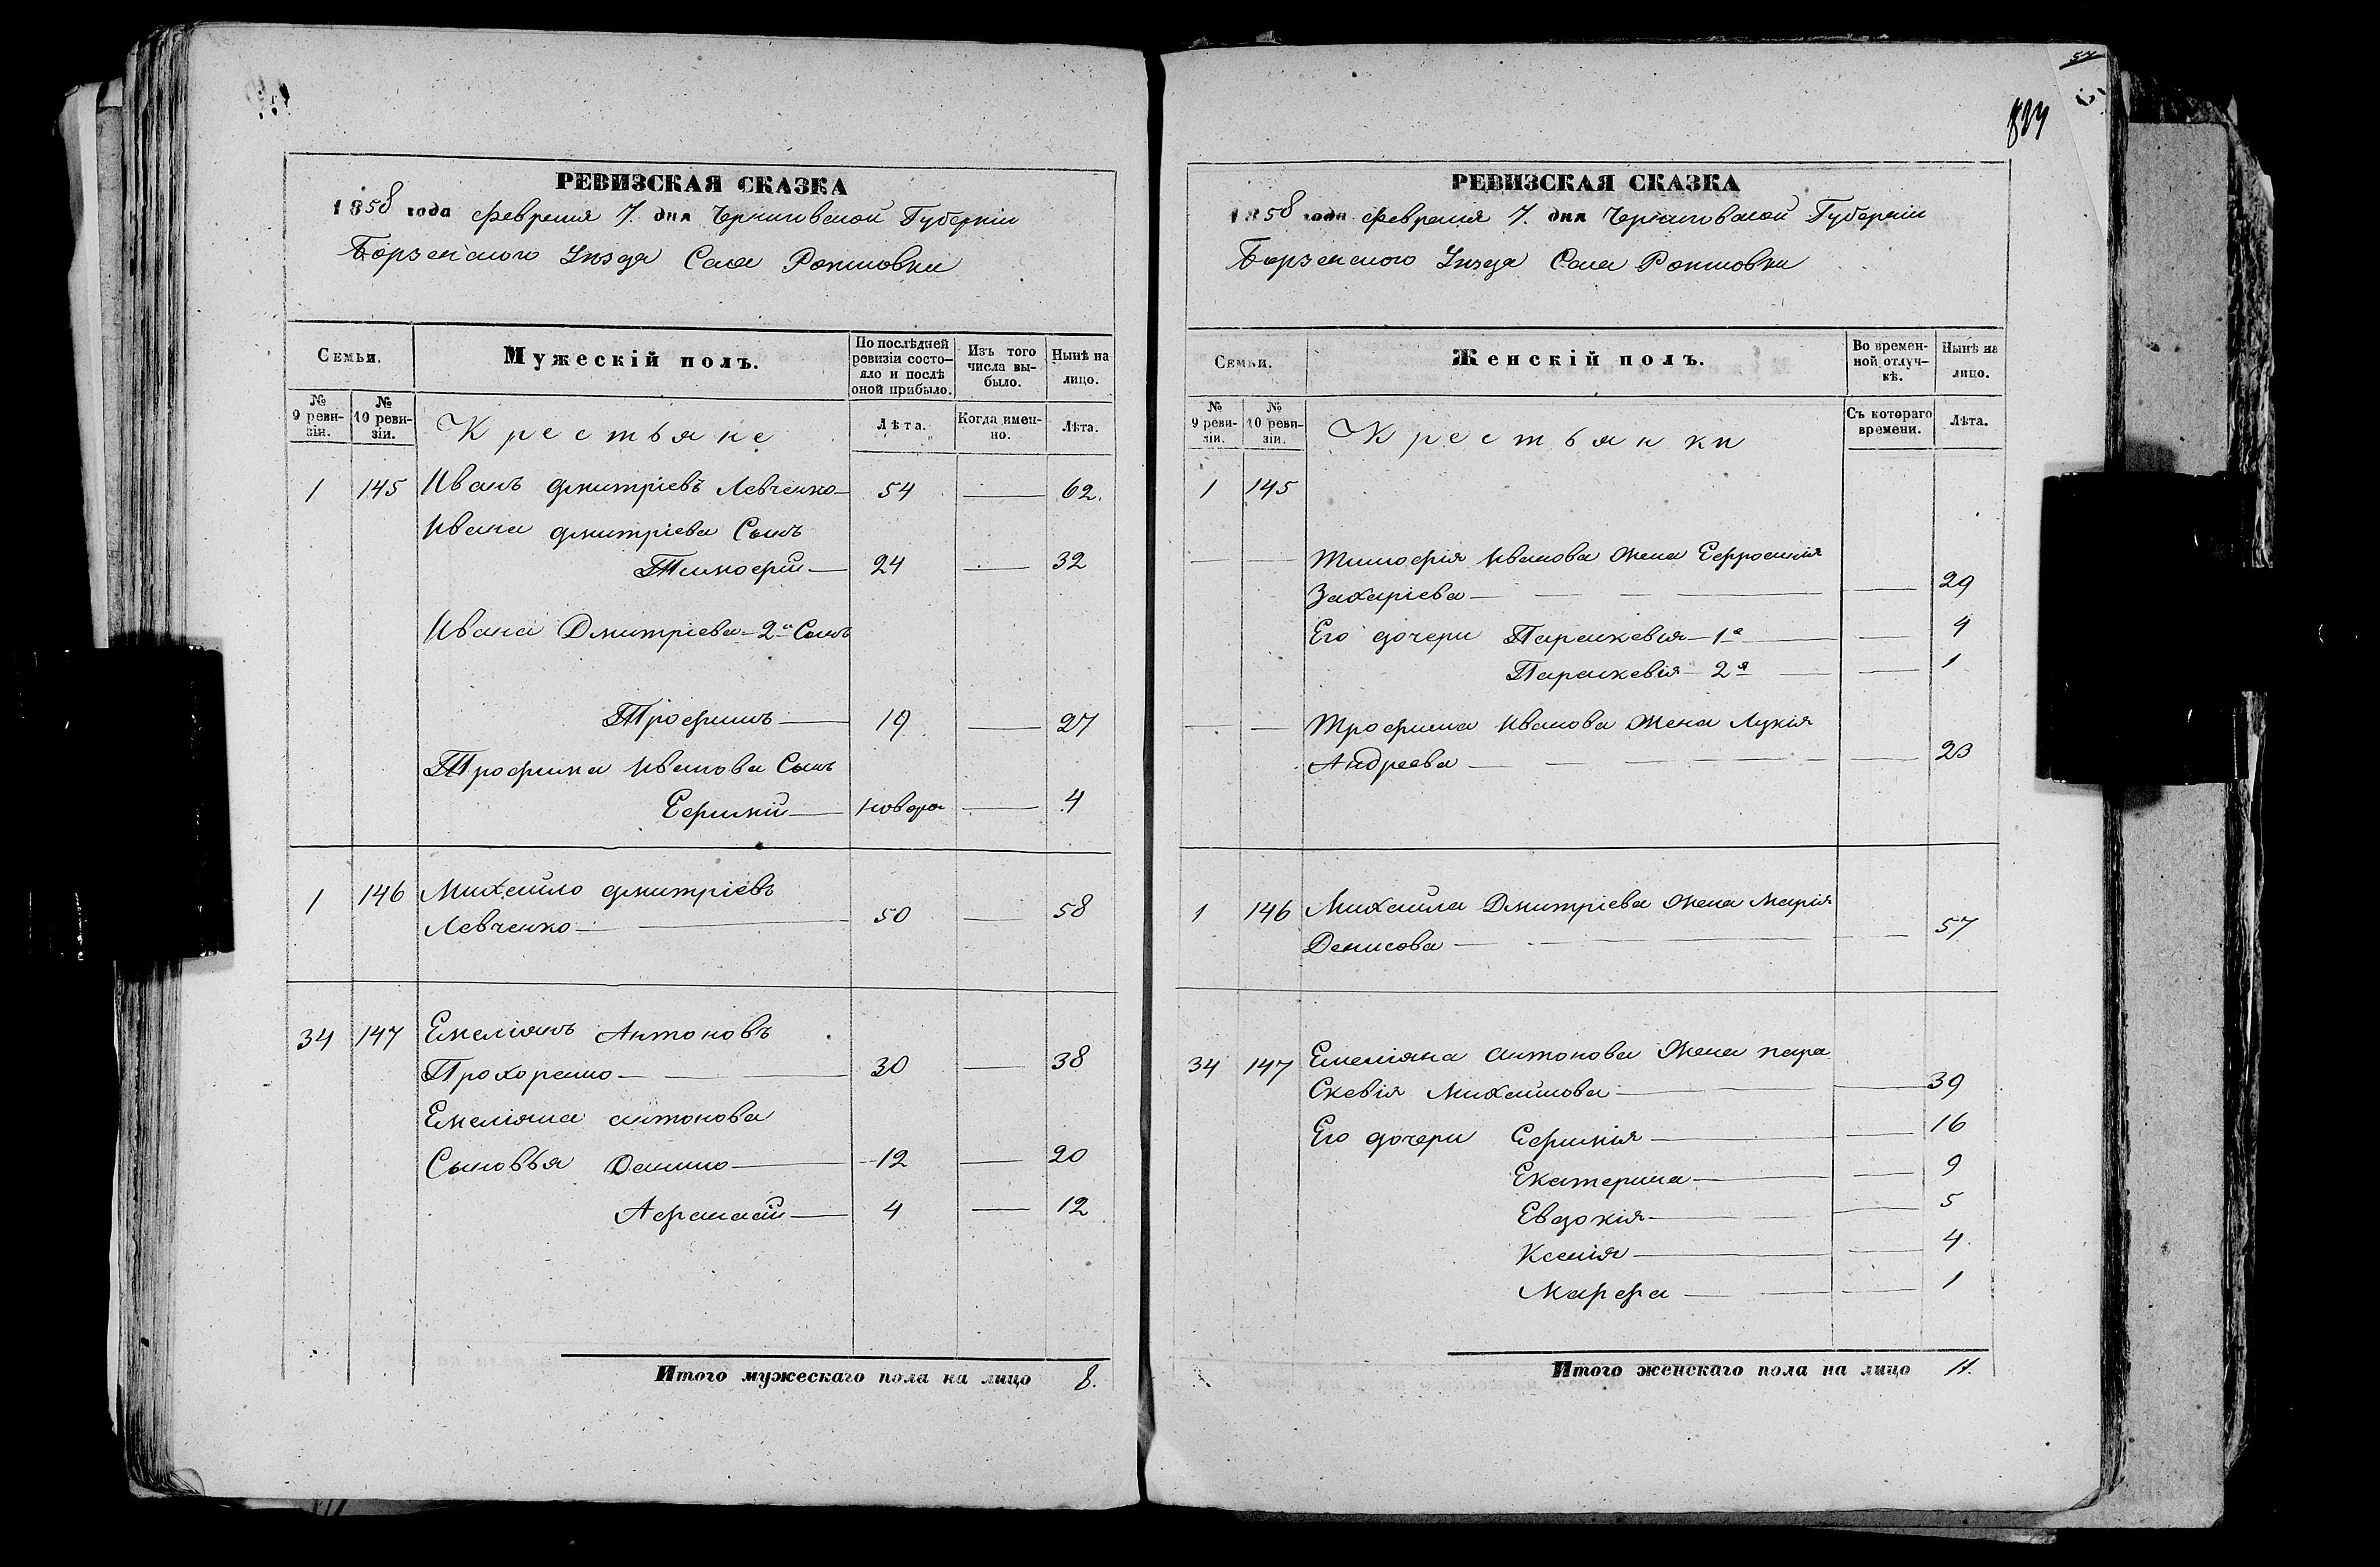 РЕВИЗСКАЯ СКАЗКА
1858 года февраля 7. дня Черниговской Губерніи
Борзенского Уѣзда Села Рокшовки
Семьи.
Мужескій полъ.
По послѣдней ревизіи состояло и послѣ оной прибыло.
Изъ того числа выбыло.
Нынѣ на лицо.
№ 9 ревизіи.
№ 10 ревизіи.
Крестьяне
Лѣта.
Когда именно.
Лѣта.
1 145 Иванъ Дмитріевъ Левченко 54 — 62.
Ивана Дмитріева Сынъ
Тимофій 24 — 32
Ивана Дмитріева 2й Сынъ
Трофимъ 19 — 27
Трофима Иванова Сынъ
Ефимій новоро — 4
1 146 Михайло Дмитріевъ
Левченко 50 — 58
34 147 Емеліянъ Антоновъ
Прохоренко 30 — 38
Емеліяна Антонова
Сыновья Данило 12 — 20
Афанасій 4 — 12
Итого мужескаго пола на лицо 8.
57
РЕВИЗСКАЯ СКАЗКА
1858 года февраля 7. дня Черниговской Губерніи
Борзенского Уѣзда Села Рокшовки
Семьи.
Женскій полъ.
Во временной отлучкѣ.
Нынѣ на лицо.
№ 9 ревизіи.
№ 10 ревизіи.
Крестьянки
Съ котораго времени.
Лѣта.
1 145
Тимофія Иванова Жена Ефросинія
Захаріева — 29
Его дочери Параскевія 1я — 4
Параскевія 2я — 1
Трофима Иванова Жена Лукія
Андреева — 23
1 146 Михайла Дмитріева Жена Марія
Денисова — 57
34 147 Емеліяна Антонова Жена пара
Скевія Михайлова — 39
Его дочери Ефимія — 16
Екатерина — 9
Евдокія — 5
Ксенія — 4
Марфа — 1
Итого женскаго пола на лицо 11.